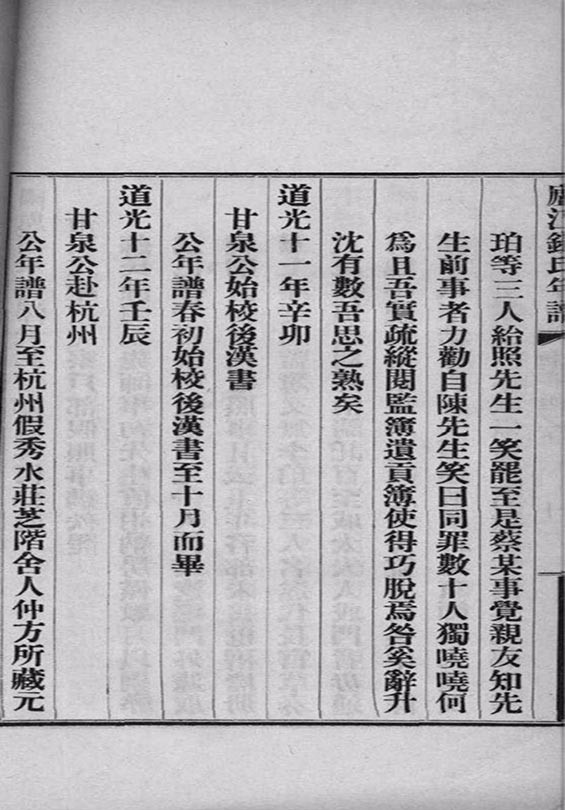 廬江錢氏年譜
珀等三人給照先生一笑罷至是蔡某事覺親友知先
生前事者力勸自陳先生笑曰同罪數十人獨嘵嘵何
爲且吾實疏縱閱監簿遺貢簿使得巧脫焉咎奚辭升
沈有數吾思之熟矣
道光十一年辛卯
甘泉公始校後漢書
公年譜春初始校後漢書至十月而畢
道光十二年壬辰
甘泉公赴杭州
公年譜八月至杭州假秀水莊芝階舍人仲方所藏元